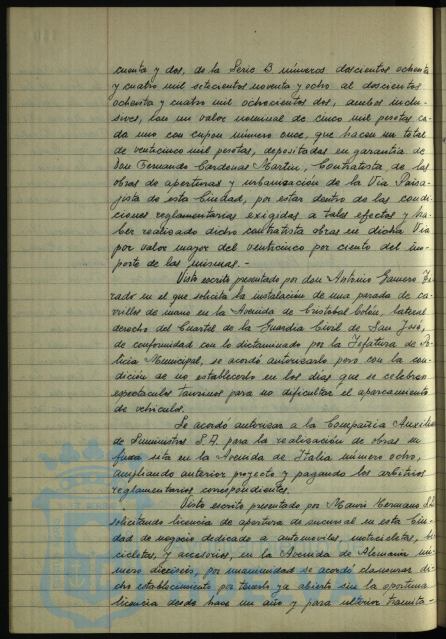 cuenta y dos, de la Serie B números doscientos ochenta
y cuatro mil setecientos noventa y ocho al doscientos
ochenta y cuatro mil ochocientos dos, ambos inclu-
sives, con un valor nominal de cinco mil pesetas ca-
da uno con cupón número once, que hacen un total
de veinticinco mil pesetas, depositadas en garantía de
Don Fernando Cardenas Martin, Contratista de las
obras de aperturas y urbanización de la Vía Paisa-
jista de ésta Ciudad, por estar dentro de las condi-
ciones reglamentarias exigidas a tales efectos y ha-
ber realizado dicho contratista obras en dicha Vía
por valor mayor del veinticinco por ciento del im-
porte de las mismas.-
Visto escrito presentado por don Antonio Gamero
rado en el que solicita la instalación de una parada de ca-
rrillos de mano en la Avenida de Cristobal Colón, lateral
derecho del Cuartel de la Guardia Civil de San José,
de conformidad con lo dictaminado por la Jefatura de Po-
licia Municipal, se acordó autorizarlo pero con la con-
dición de no establecerlo en los días que se celebren
espectaculos taurinos para no dificultar el aparcamiento
de vehículos.
Se acordó autorizar a la Compañia Auxiliar
de Suministros S.A. para la realización de obras en
finca sita en la Avenida de Italia número ocho,
ampliando anterior proyecto y pagando los arbitrios
reglamentarios correspondientes.
Visto escrito presentado por Mauri Hermano S.L.
solicitando licencia de apertura de sucursal en esta Ciu-
dad de negocio dedicado a automoviles, motocicletas, bi-
cicletas, y accesorios, en la Avenida de Alemania nú-
mero dieciseis, por unanimidad se acordó clausurar di-
cho establecimiento por tenerlo ya abierto sin la oportuna
licencia desde hace un año y para ulterior tramita-